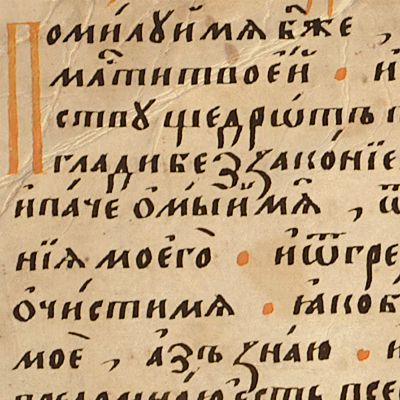 Поми́лꙋй мѧ бж҃е ,
млⷭ҇ти твое́й · и҆
ству щедрѡ́тъ
глади беззако́нїе
и҆па́че ѡ҆мы́й мѧ̀ , ѿ
нїѧ моегѡ̀ · и҆ѿгре
ѡ҆чи́сти мѧ · ꙗ҆́ко б
моѐ , а҆́зъ зна́ю ·